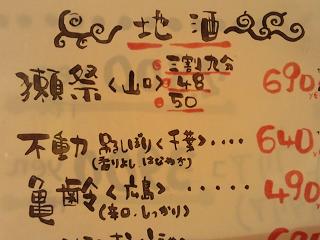 地酒
獺祭〈山口〉 三割九分 690
48
50
不動 吊るしぼり〈千葉〉···· 640
(香りよし はなやか)
亀齢〈広島〉····· 490
(辛口、しっかり)